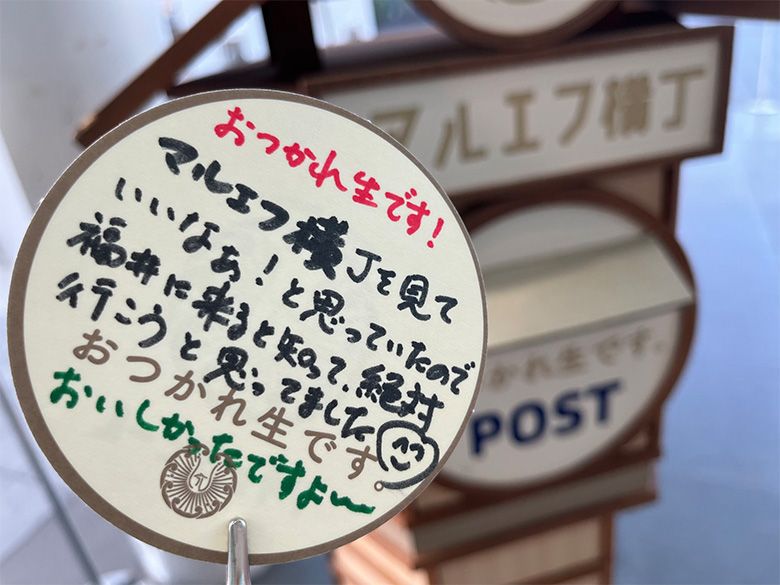 おつかれ生です!
マルエフ横丁を見て
いいなぁ!と思っていたので
福井に来ると知って、絶対
行こうと思ってました
おつかれ生です。
おいしかったですよ〜
マルエフ横丁
かれ生です。
POST